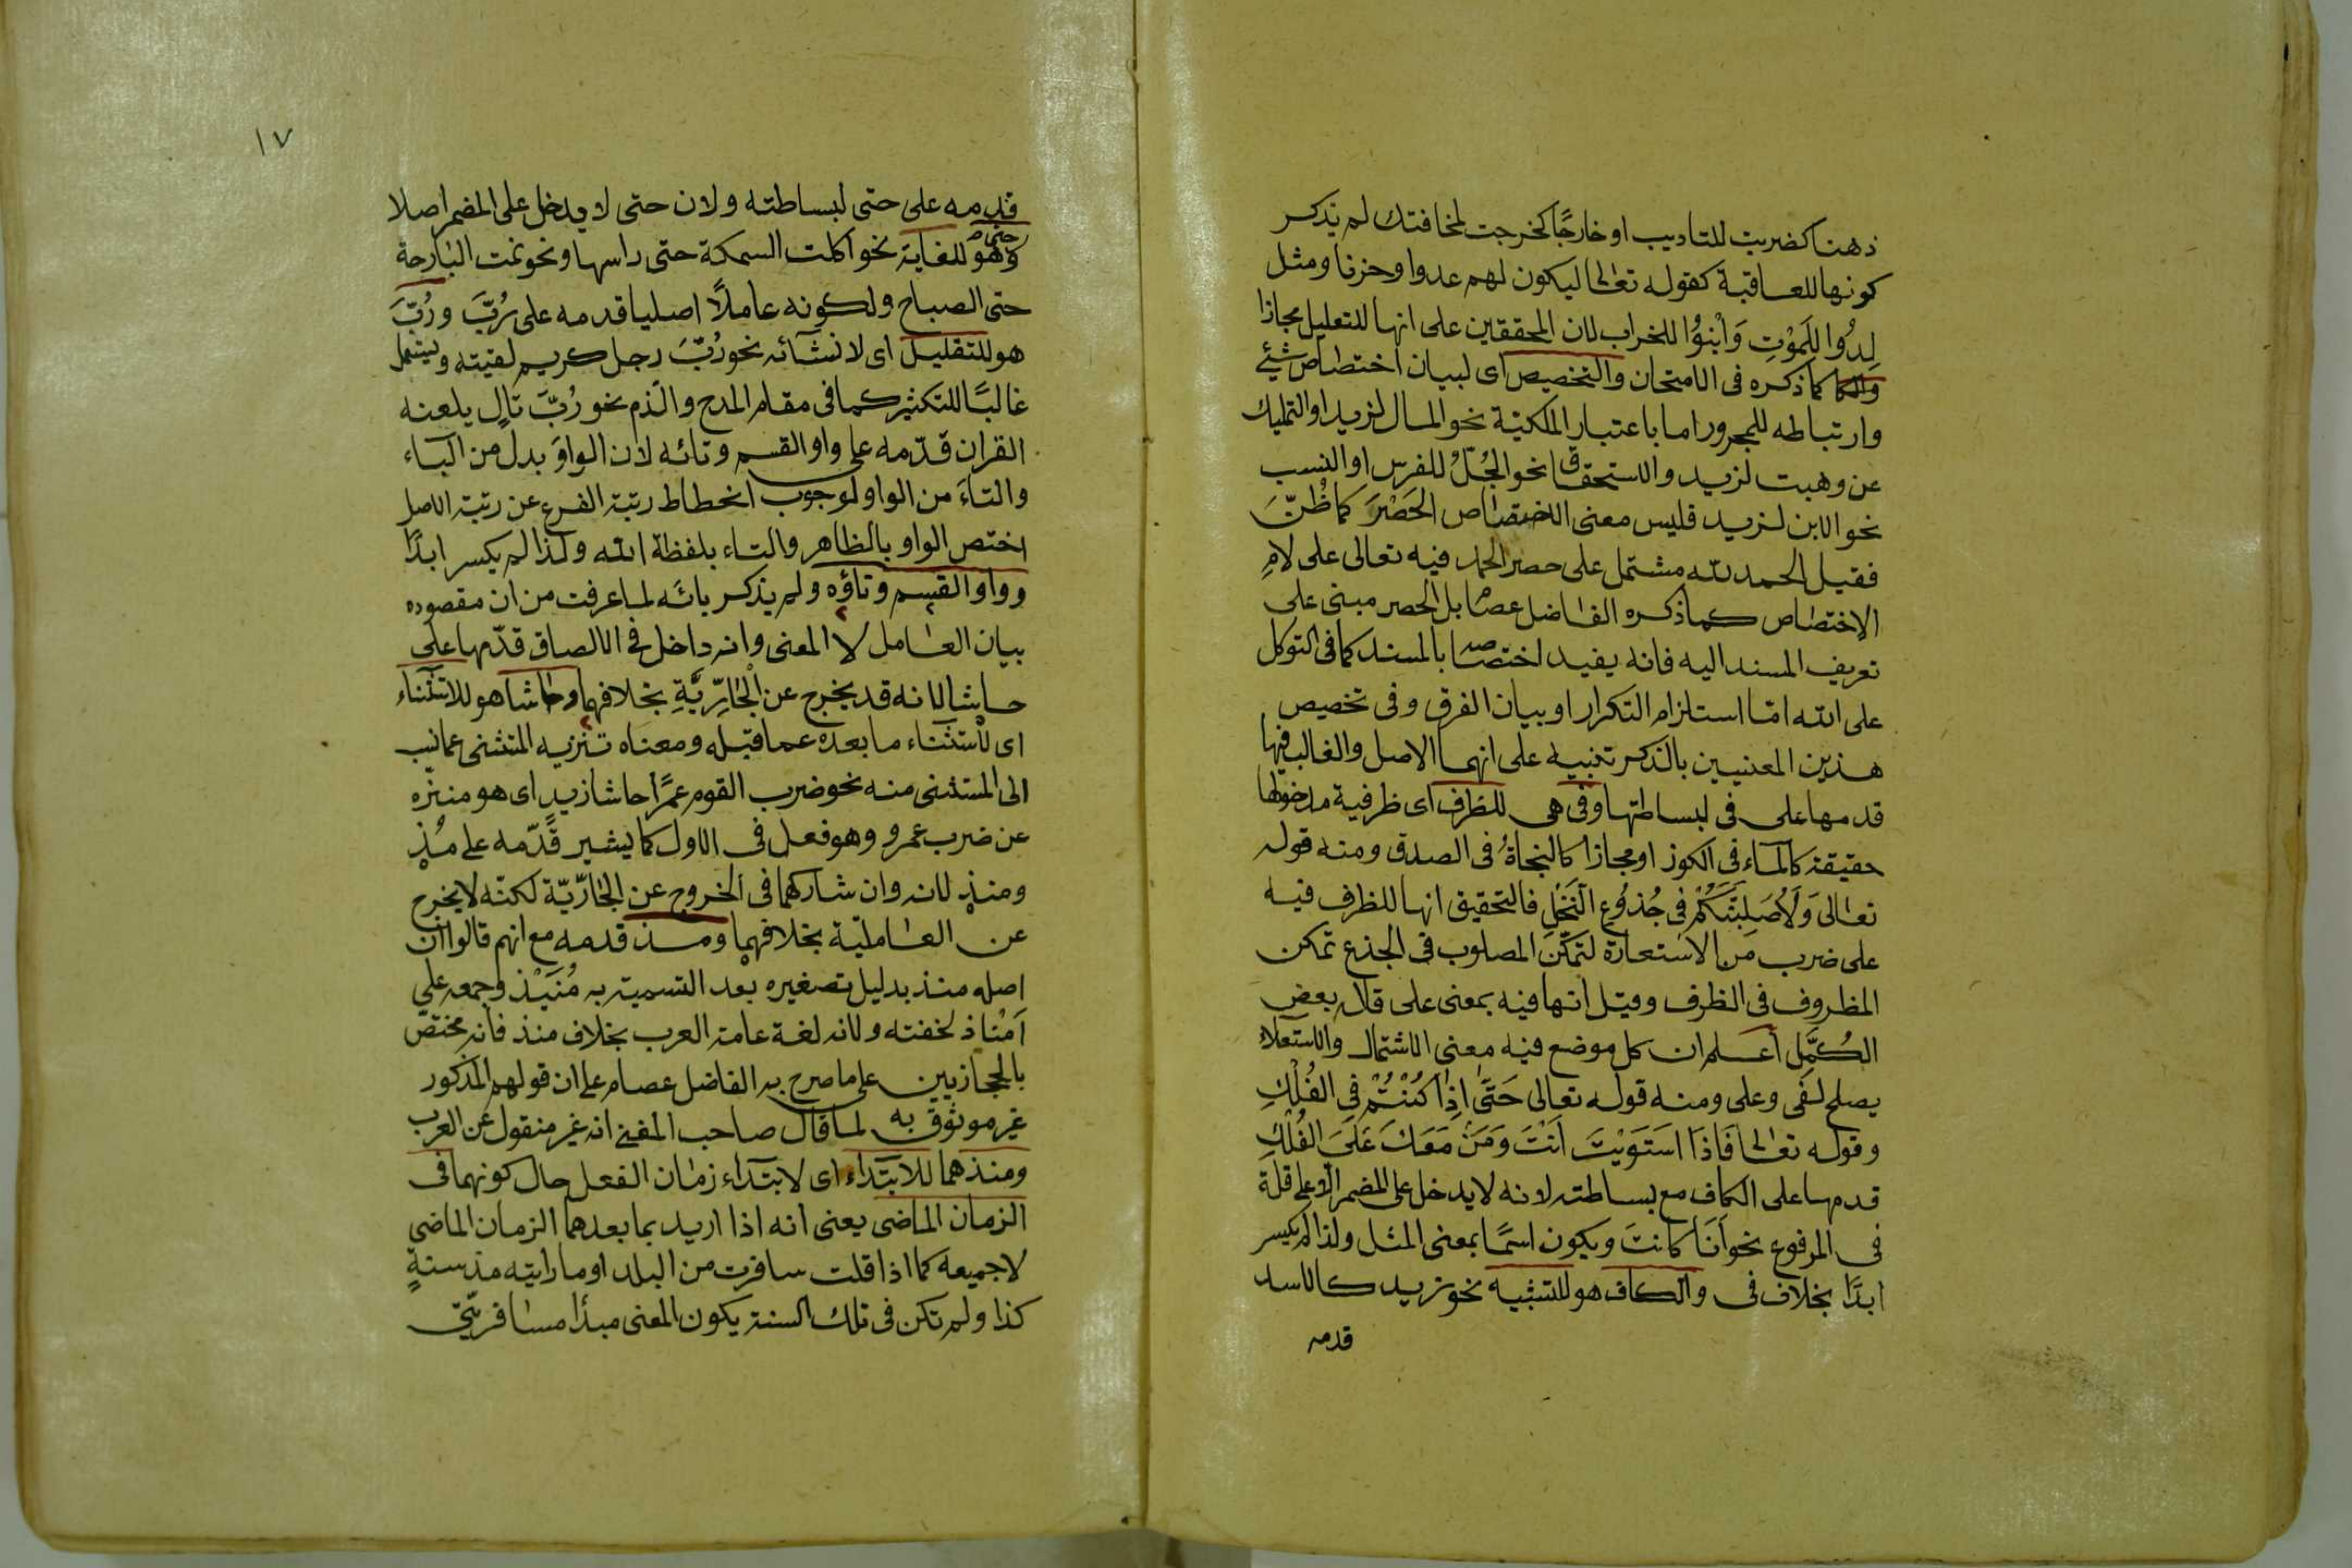 ذهنا كضربت للتاديب او خارجًا كخرجت لمخافتك لم يذكر
كونها للعاقبة كقوله تعالى ليكون لهم عدوا وحزنا ومثل
لِدُوا لِلْمَوْتِ وَابْنُوُا للخراب لان المحققين على انها للتعليل مجازا
كما ذكره فى الامتحان والتخصيص اى لبيان اختصاص شئ
وارتباطه للمجرور اما باعتبار الملكيّة نحو المال لزيد او التمليك
عن وهبت لزيد والاستحقاق نحو الجُلّ للفرس او النسب
نحو الابن لزيد فليس معنى الاختصاص الحَصْرَ كما ظُنَّ
فقيل الحمد لله مشتمل على حصر الحمد فيه تعالى على لامِ
الاختصاص كما ذكره الفاضل عصام بل الحصر مبنى على
تعريف المسند اليه فانه يفيد اختصاصه بالمسند كما فى التوكل
على الله امّا استلزام التكرار او بيان الفرق وفى تخصيص
هذين المعنيين بالذكر تنبيه على انهما الاصل والغالب فيها
قدمها على فى لبساطتها وفى هى للظرف اى ظرفية مدخولها
حقيقة كالماء فى الكوز او مجازا كالنجاة فى الصدق ومنه قوله
تعالى وَلَأُصَلِبَنَّكُمْ فى جُذُوعِ النَّخْلِ فالتحقيق انها للظرف فيه
على ضرب من الاستعارة لتمكّن المصلوب فى الجذع تمكن
المظروف فى الظرف وقيل انها فيه بمعنى على قال بعض
الكُمَّلِ اعلم ان كل موضع فيه معنى الاشتمال والاستعلاء
يصلح لفى وعلى ومنه قوله تعالى حَتَّى اِذَا كُنْتُمْ فِى الفُلْكِ
وقوله تعالى فَاذَا اسْتَوَيْتَ اَنْتَ وَمَنْ مَعَكَ عَلَى الفُلْكِ
قدمها على الكاف مع بساطته لانه لا يدخل على المضمر الا على قلة
فى المرفوع نحو اَنَا كانت ويكون اسمًا بمعنى المثل ولذا لم يكسر
ابدًا بخلاف فى والكاف هو للتشبيه نحو زيد كالاسد
قدمه
١٧
قدمه على حتى لبساطته ولان حتى لا يدخل على المضمر اصلا
وهو حتى للغاية نحو اكلت السمكة حتى راسها ونحو نمت البارحة
حتى الصباح ولكونه عاملًا اصليا قدمه على رُبَّ ورُبَّ
هو للتقليل اى لانشائه نحو رُبَّ رجل كريم لقيته ويستعمل
غالبًا للتكثير كما فى مقام المدح والذم نحو رُبَّ تالٍ يلعنه
القران قدّمه على واو القسم وتائه لان الواوَ بدل من الباء
والتاءَ من الواو لوجوب انحطاط رتبة الفرع عن رتبة الاصل
اختص الواو بالظاهر والتاء بلفظة الله ولذا لم يكسر ابدًا
وواو القسم وتاؤه ولم يذكر بائه لما عرفت من ان مقصوده
بيان العامل لا المعنى وانه داخل فى الالصاق قدّمها على
حاشا لانه قد يخرج عن الجَارِّيَّةِ بخلافهما وحاشا هو للاستثناء
اى لاستثناء ما بعده عما قبله ومعناه تنزيه المستثنى عما نسب
الى المستثنى منه نحو ضرب القوم عمرًا حاشا زيدٍ اى هو منزّه
عن ضرب عمرو وهو فعل فى الاول كما يشير قدّمه على مُذْ
ومنذ لانه وان شاركهما فى الخروج عن الجارّيّة لكنّه لا يخرج
عن العامليّة بخلافهما ومذ قدمه مع انهم قالوا ان
اصله منذ بدليل تصغيره بعد التسمية به مُنَيْذ وجمعه على
اَمْنَاذ لخفته ولانه لغة عامة العرب بخلاف منذ فانه مختصّ
بالحجازيين على ما صرح به الفاضل عصام على ان قولهم المذكور
غير موثوق به لما قال صاحب المغنى انه غير منقول عن العرب
ومنذ هما للابتداء اى لابتداء زمان الفعل حال كونهما فى
الزمان الماضى يعنى انه اذا اريد بما بعدهما الزمان الماضى
لا جميعه كما اذا قلت سافرت من البلد او ما رايته مذ سنةٍ
كذا ولم تكن فى تلك السنة يكون المعنى مبدأ مسافرتى